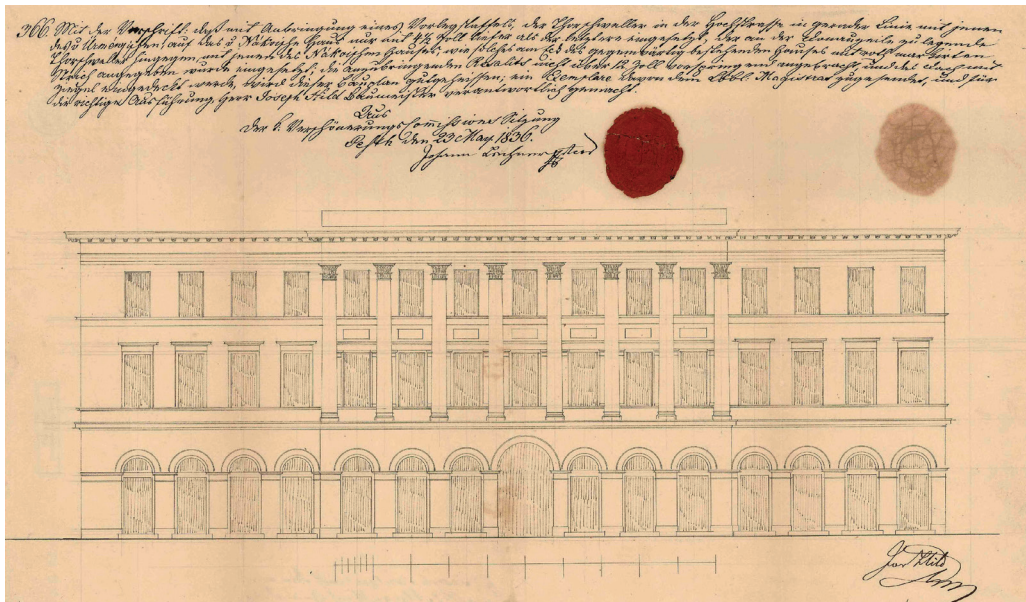 366. Mit der Vorschrift: daß mit Anbringung eines Vorlegstaffels, der Thorschweller in der Hochstrasse in gerader Linie mit jenem
des v auf das v Nákoische Haus nur auf 4½ Zoll tiefer als der letztere eingesetzt, der an der zu legende
Thorschweller hingegen mit jenem des Nákoischen Hauses wie solches an des gegenwärtig bestehenden Hauses
angegeben wurde eingesetzt; die anzubringenden Risalits nicht über 12 Zoll vorspringend angebracht, und das
Ziegel eingedeckt werde, wird dieser Bauplan gutgeheissen; ein Exemplare davon dem Löbl. Magistrat zugesendet, und für
die richtige Ausführung Herr Joseph Hild Baumeister verantwortlich gemacht.
Aus
der k. Verschönerungs Commissions Sitzung
Pesth den 23 May 1836.
Johann Lechner
Jos Hild